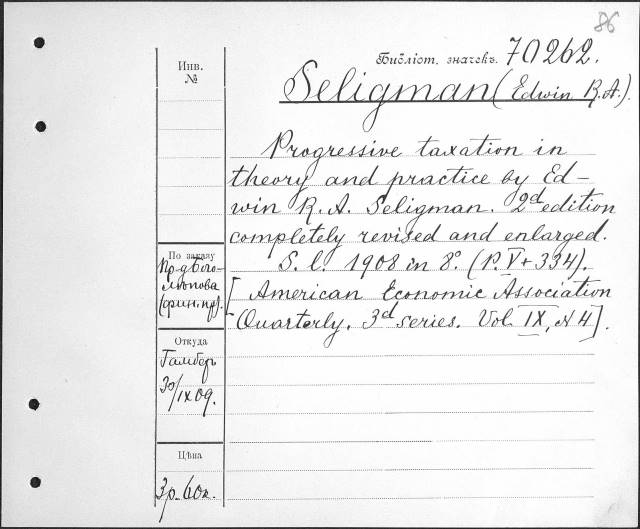 86
Библіот. значекъ. 70262.
Инв.
№
Seligman (Edwin R.A.).
Progressive taxation in
theory and practice by Ed-
win R. A. Seligman. 2d edition
completely revised and enlarged.
S. l. 1908 in 8°. (P. V + 334).
[American Economic Association
Quarterly. 3d series. Vol. IX, N 4].
По заказу
Пр-д Бого-
лѣпова
(фин. пр).
Откуда
Гамберъ
30/IX 09.
Цѣна
3р. 60к.